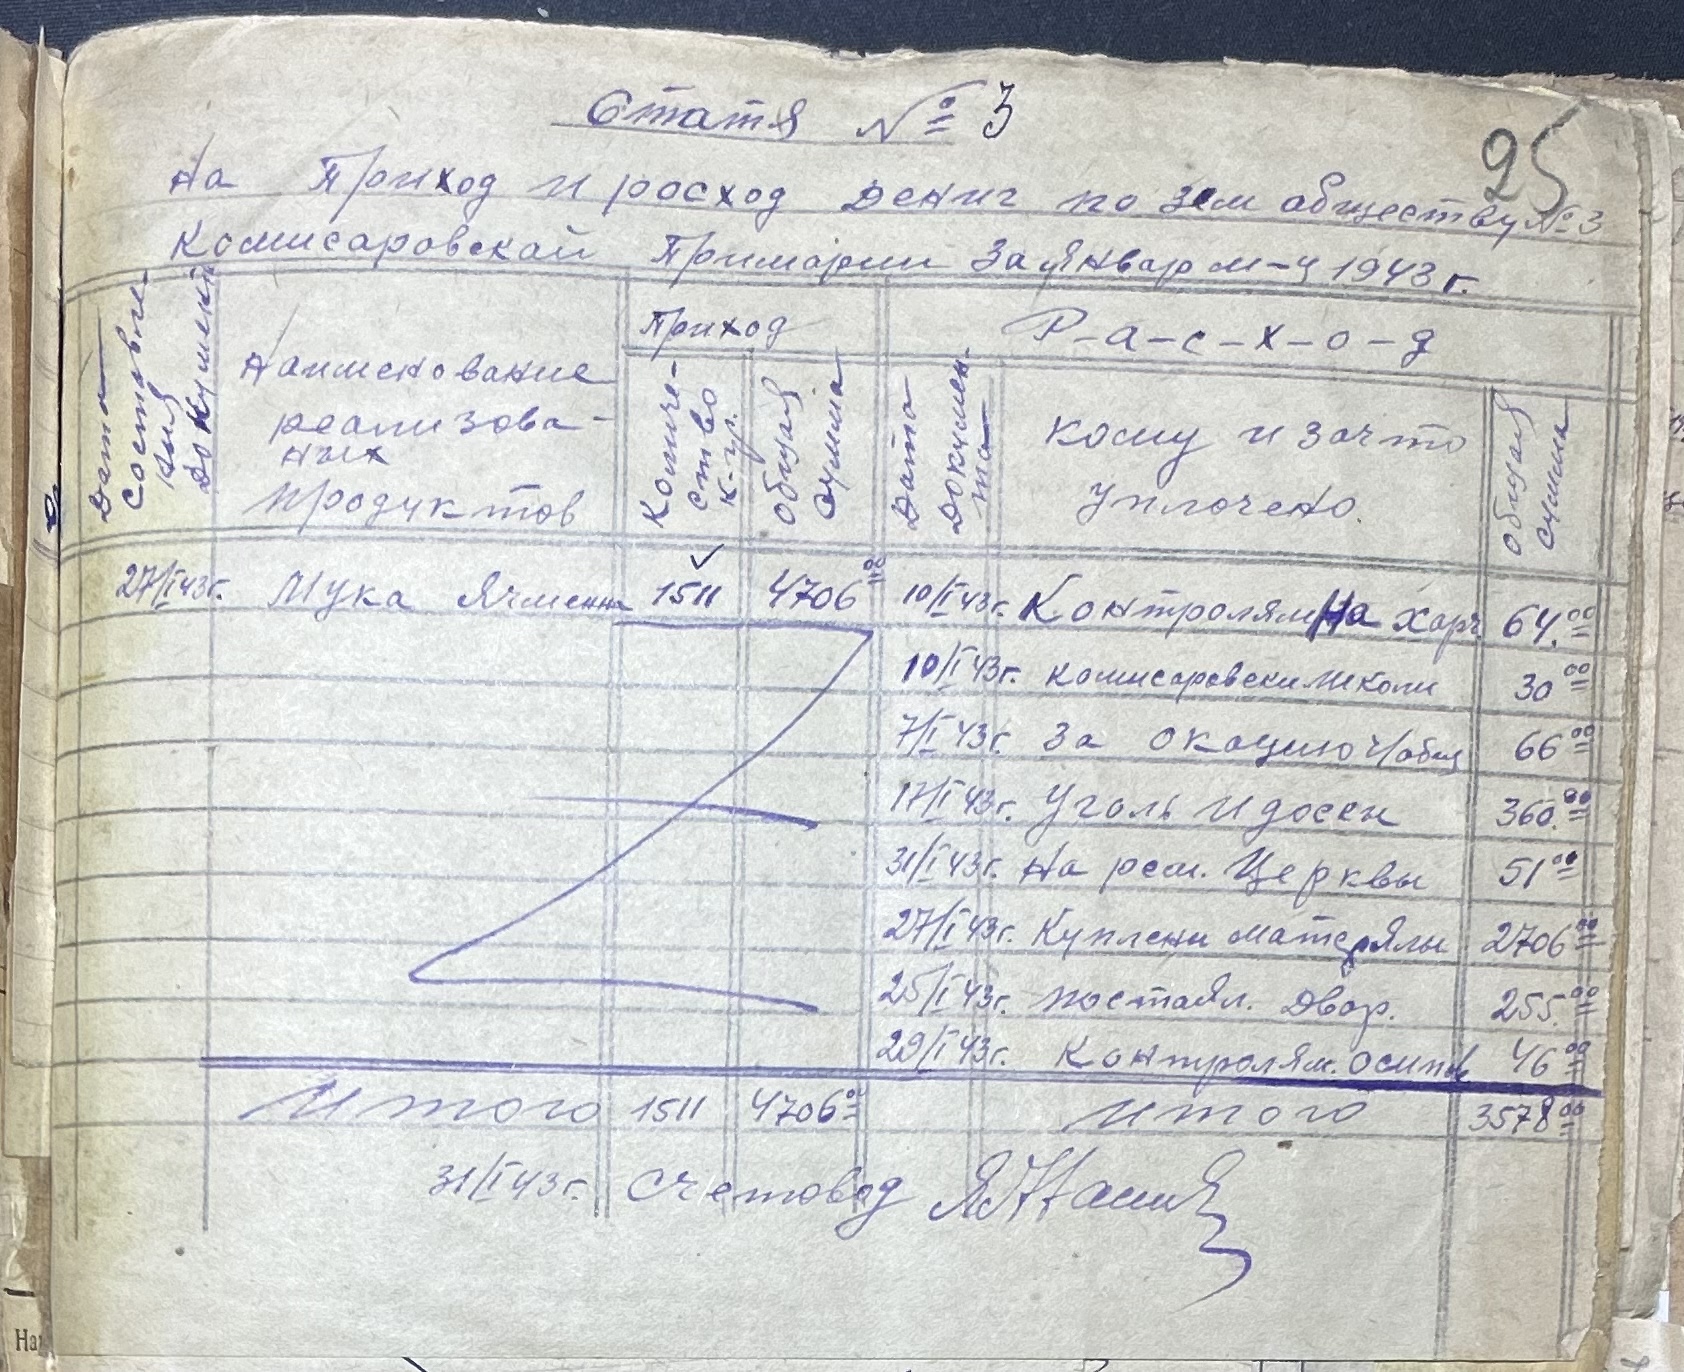 Статя № 3
25
на Приход и росход Дениг по зем обществу № 3
Комисаровской Примарии за январ м-ц 1943 г.
Дата Составле-ния Докумекта
Наименование реализова-ных продуктов
Приход
Количе-ство к-гр.
Общая сумма
Р-а-с-х-о-д
Дата Докумен-та
кому и за что уплочено
Общая сумма
27/I 43г. Мука Ячменна 1511 4706 00 10/I 43г. Контролям на харч 64.00
10/I 43г. Комисаровски школи 30 00
7/I 43г. За 66 00
17/I 43г. Уголь и доски 360.00
31/I 43г. На рем. Церквы 51 00
27/I 43г. Куплени матерялы 2706 00
25/I 43г. постоял. Двор. 255.00
29/I 43г. Контролям. 46 00
Итого 1511 4706 00 Итого 3578 00
31/I 43г. Счетовод
На